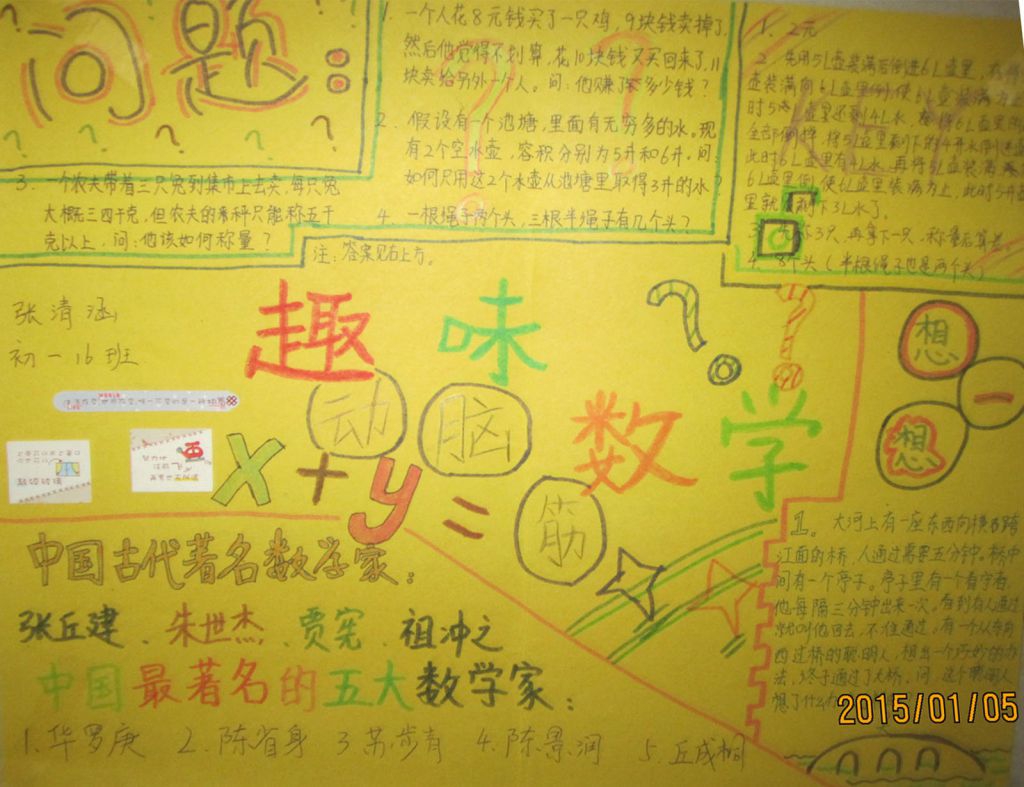 问题:
1. 一个人花8元钱买了一只鸡,9块钱卖掉了,
然后他觉得不划算,花10块钱又买回来了,11
块卖给另外一个人。问:他赚了多少钱?
2. 假设有一个池塘,里面有无穷多的水。现
有2个空水壶,容积分别为5升和6升。问:
如何只用这2个水壶从池塘里取得3升的水?
4. 一根绳子两个头,三根半绳子有几个头?
3. 一个农夫带着三只兔到集市上去卖,每只兔
大概三四千克,但农夫的秤只能称五千
克以上,问:他该如何称量?
注:答案见右上方。
1. 2元
2. 先用5L壶装满后倒进6L壶里,
壶装满向6L壶里倒,使6L壶装满为止,
时5L壶里还剩4L水
全部倒掉,将5L壶里剩下的4升水倒进
此时6L壶里有4L水,再将5L壶装满
6L壶里倒,使6L壶里装满为止,此时5L
里就剩下3L水了。
3. 称3只,再拿下一只,称量后算差
4. 8个头(半根绳子也是两个头)
张清涵
初一16班
趣味数学
动脑筋
x+y=
想一想
中国古代著名数学家:
张丘建、朱世杰、贾宪、祖冲之
中国最著名的五大数学家:
1.华罗庚 2.陈省身 3.苏步青 4.陈景润 5.丘成桐
1。大河上有一座东西向横跨
江面的桥,人通过需要五分钟。桥中
间有一个亭子。亭子里有一个看守者,
他每隔三分钟出来一次。看到有人通过
就叫他回去,不准通过。有一个从东向
西过桥的聪明人,想出一个巧妙的办
法,终于通过了大桥。问:这个聪明人
想了什么
2015/01/05